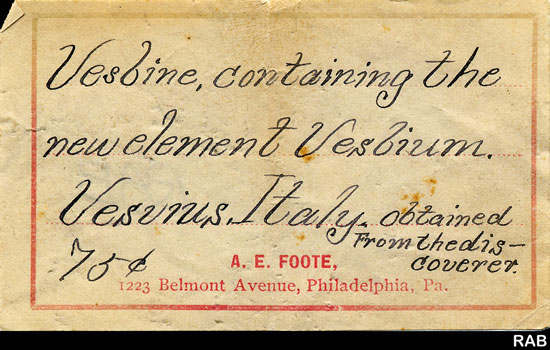 Vesbine, containing the
new element Vesbium.
Vesvius, Italy. obtained
From the dis-
75¢ coverer.
A. E. FOOTE,
1223 Belmont Avenue, Philadelphia, Pa.
RAB